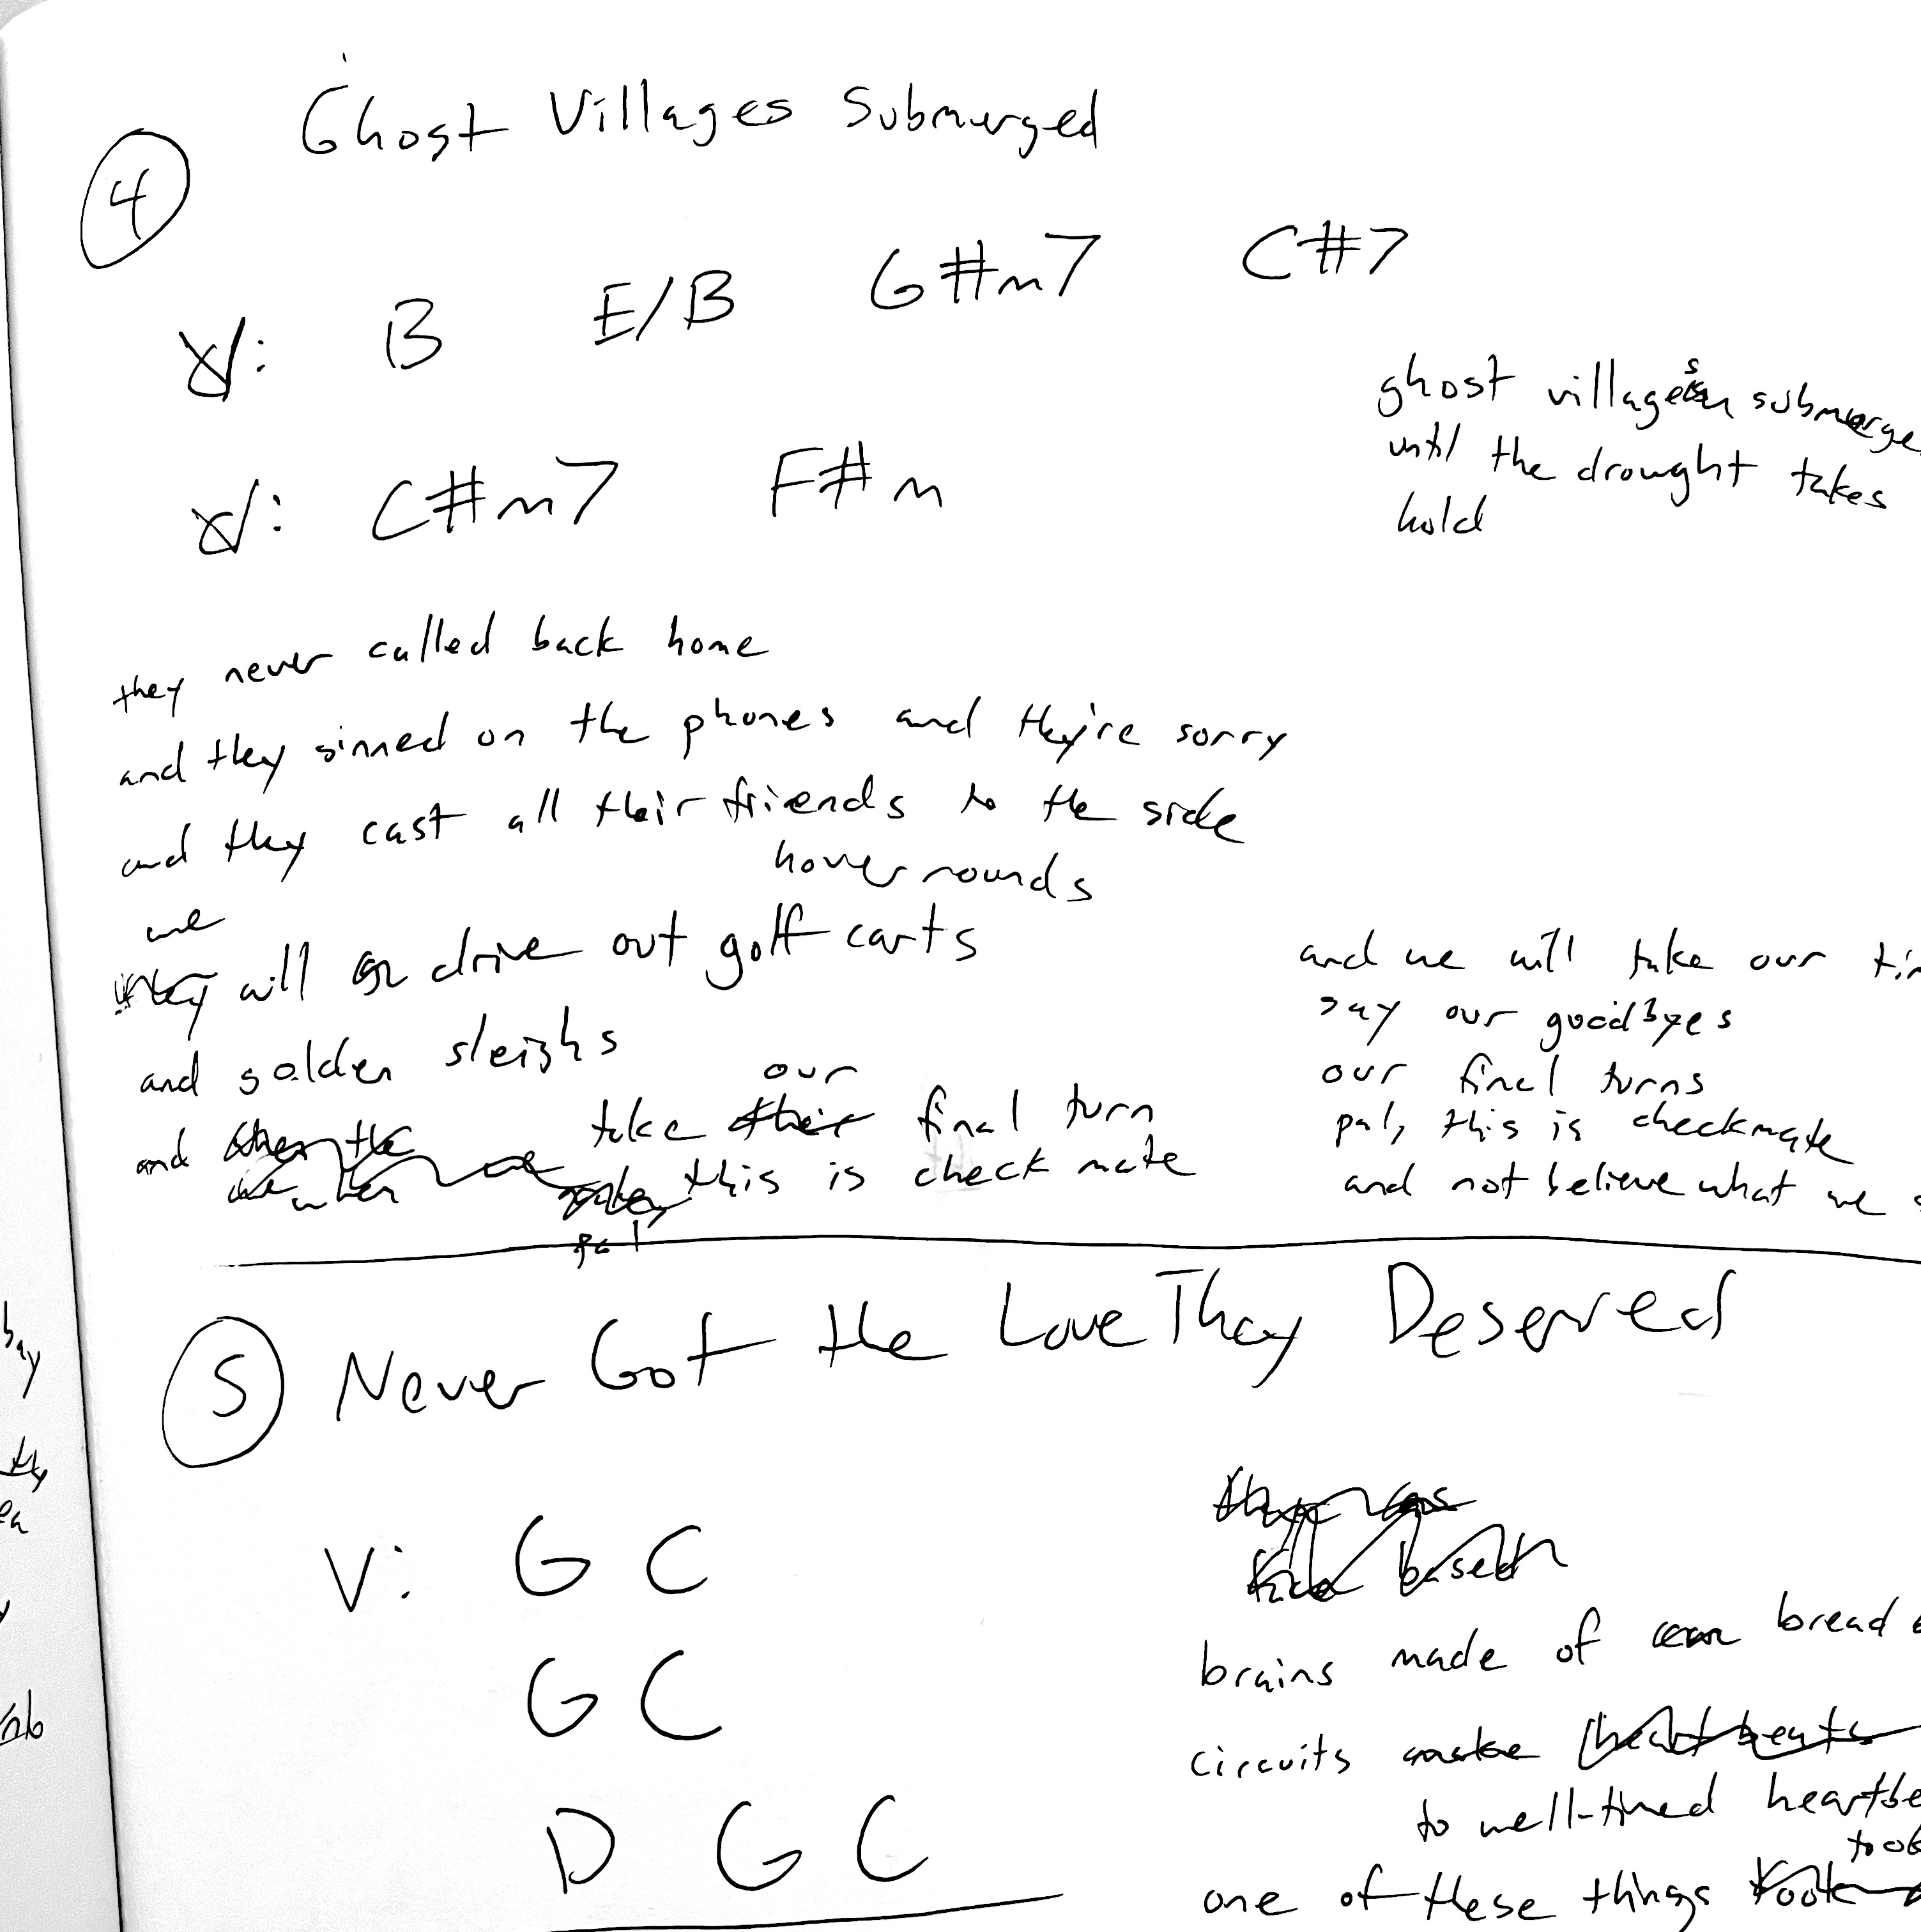 Ghost Villages Submerged
4
V: B E/B G#m7 C#7
V: C#m7 F#m
ghost villages submerge
until the drought takes
hold
they never called back home
and they sinned on the phones and they're sorry
and they cast all their friends to the side
hoverrounds
we
they will drive out golf carts
and golden sleighs
our
and when the take their final turn
when we this is check mate
pal
and we will take our
say our goodbyes
our final turns
pal, this is checkmate
and not believe what we
5 Never Got the Love They Deserved
V: G C
G C
D G C
based
brains made of bread
circuits make heartbeats
to well-timed
one of these things took